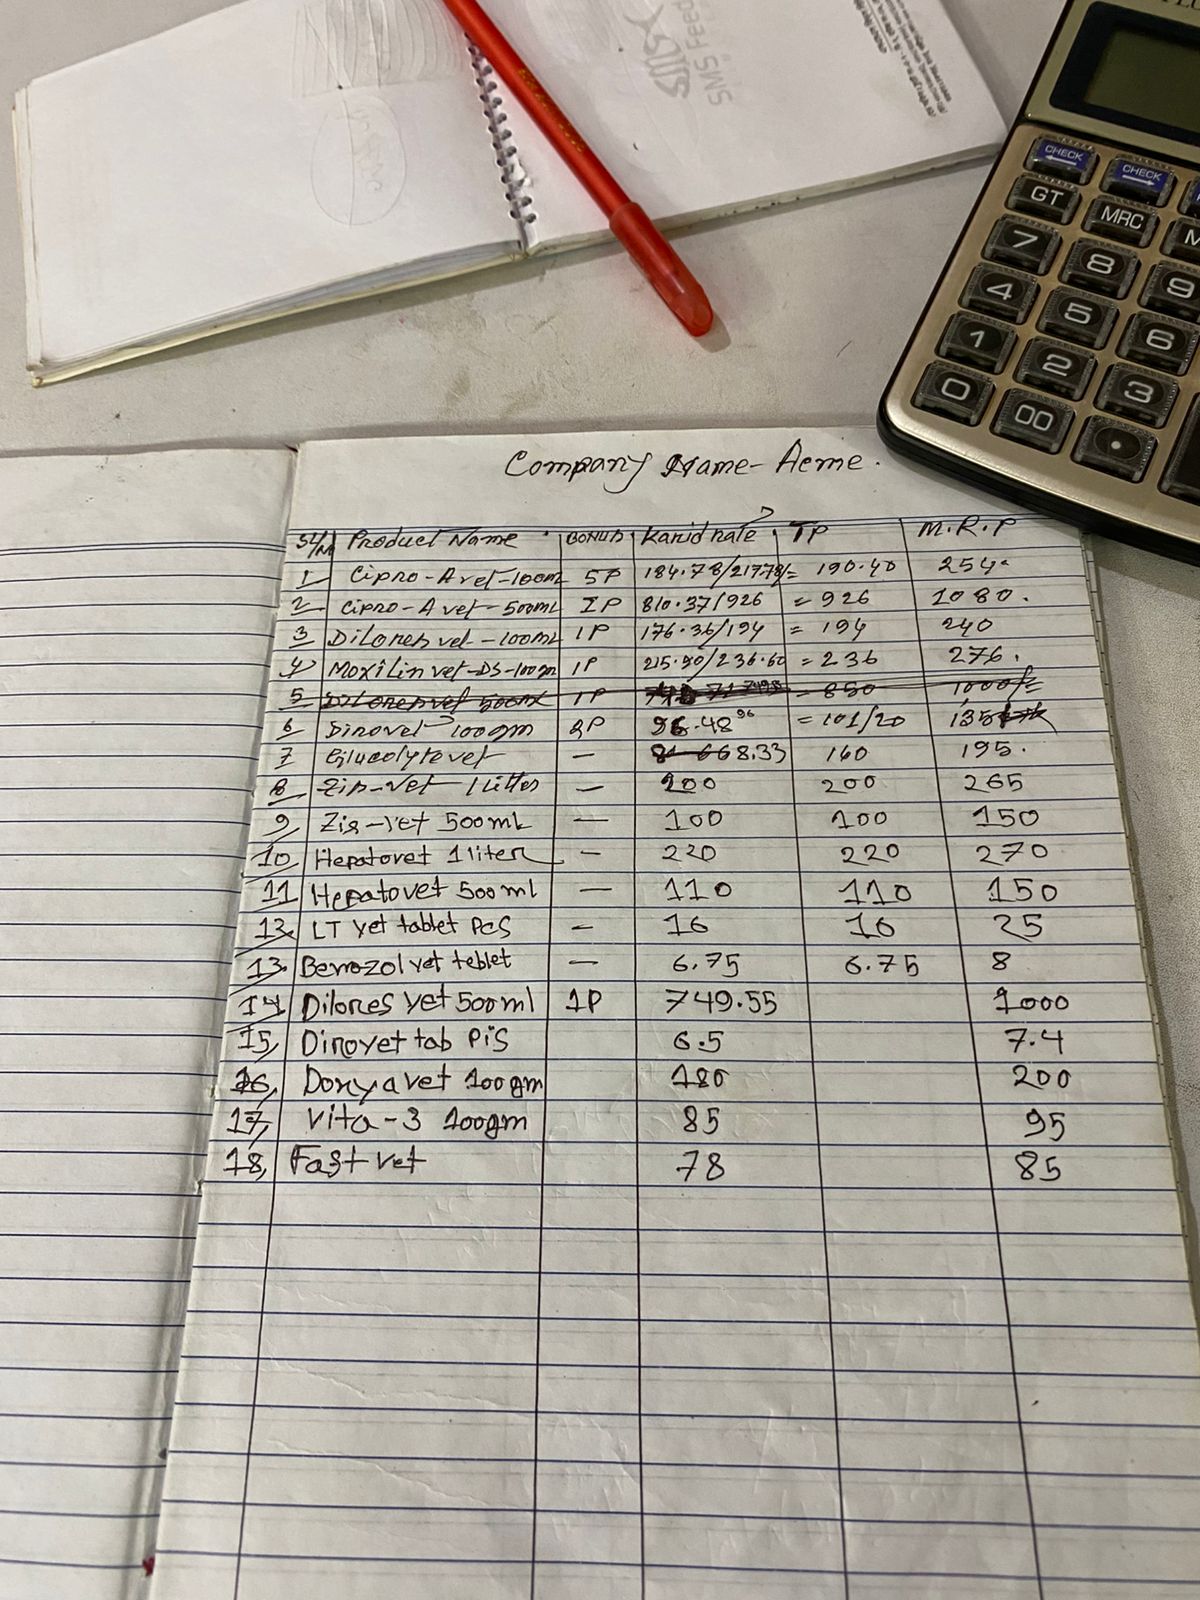 SMS Feed
CHECK CHECK
GT MRC M
7 8 9
4 5 6
1 2 3
0 00 .
Company Name - Acme.
SL/N Product Name BONUS Karid rate TP M.R.P
1 Cipro-A vet-100ml 5P 184.78/217.78/= 190.40 254
2 Cipro-A vet-500ml 1P 810.37/926 = 926 1080.
3 Dilores vet-100ml 1P 176.36/194 = 194 240
4 Moxilin vet-DS-100gm 1P 215.90/236.60 = 236 276.
5 Dilores vet 500ml 1P = 850 1000/=
6 Dinovet 100gm 2P 96.48 96 = 101/20 135
7 Glucolyte vet — 668.33 160 195.
8 Zis-vet 1 Litter — 200 200 265
9 Zis-vet 500ml — 100 100 150
10 Hepatovet 1 liter — 220 220 270
11 Hepatovet 500ml — 110 110 150
12 LT vet tablet Pcs — 16 16 25
13 Benazol vet teblet — 6.75 6.75 8
14 Dilores vet 500ml 1P 749.55 1000
15, Dinovet tab Pis 6.5 7.4
16, Doxyavet 100gm 180 200
17, Vita-3 100gm 85 95
18, Fast vet 78 85